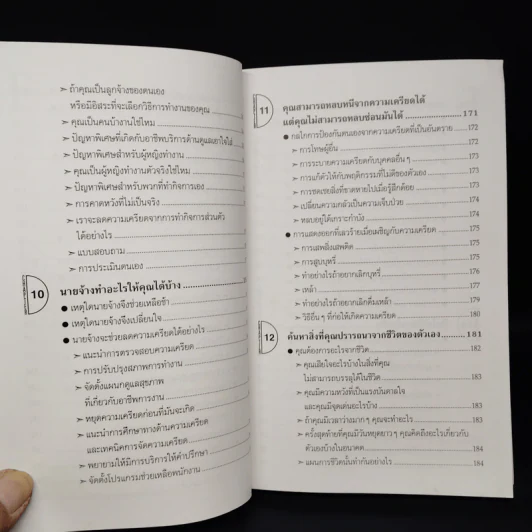 ➣ ถ้าคุณเป็นลูกจ้างของตนเอง
หรือมีอิสระที่จะเลือกวิธีการทำงานของคุณ
➣ คุณเป็นคนบ้างานใช่ไหม
➣ ปัญหาพิเศษที่เกิดกับอาชีพบริการด้านดูแลเอาใจใส่
➣ ปัญหาพิเศษสำหรับผู้หญิงทำงาน
➣ คุณเป็นผู้หญิงทำงานตัวจริงใช่ไหม
➣ ปัญหาพิเศษสำหรับพวกที่ทำกิจการเอง
➣ การคาดหวังที่ไม่เป็นจริง
➣ เราจะลดความเครียดจากการทำกิจการส่วนตัว
ได้อย่างไร
➣ แบบสอบถาม
➣ การประเมินตนเอง
10 นายจ้างทำอะไรให้คุณได้บ้าง
● เหตุใดนายจ้างจึงช่วยเหลือช้า
● เหตุใดนายจ้างจึงเปลี่ยนใจ
● นายจ้างจะช่วยลดความเครียดได้อย่างไร
➣ แนะนำการตรวจสอบความเครียด
➣ การปรับปรุงสภาพการทำงาน
➣ จัดตั้งแผนกดูแลสุขภาพ
ที่เกี่ยวกับอาชีพการงาน
➣ หยุดความเครียดก่อนที่มันจะเกิด
➣ แนะนำการศึกษาทางด้านความเครียด
และเทคนิคการจัดความเครียด
➣ พยายามให้มีการบริการให้คำปรึกษา
➣ จัดตั้งโปรแกรมช่วยเหลือพนักงาน
11 คุณสามารถหลบหนีจากความเครียดได้
แต่คุณไม่สามารถหลบซ่อนมันได้ 171
● กลไกการป้องกันตนเองจากความเครียดที่เป็นอันตราย 172
➣ การโทษผู้อื่น 172
➣ การระบายความเครียดกับบุคคลอื่นๆ 173
➣ การแก้ตัวให้กับพฤติกรรมที่ไม่ดีของตัวเอง 173
➣ การชดเชยสิ่งที่ขาดหายไปเมื่อรู้สึกด้อย 173
➣ เปลี่ยนความกลัวเป็นความเจ็บป่วย 174
➣ หลบอยู่ใต้เกราะกำบัง 174
● การแสดงออกที่เลวร้ายเมื่อเผชิญกับความเครียด 175
➣ การเสพสิ่งเสพติด 175
➣ การสูบบุหรี่ 175
➣ ทำอย่างไรถ้าอยากเลิกบุหรี่ 176
➣ เหล้า 177
➣ ทำอย่างไรถ้าอยากเลิกดื่มเหล้า 179
➣ วิธีอื่นๆ ที่ก่อให้เกิดความเครียด 180
12 ค้นหาสิ่งที่คุณปรารถนาจากชีวิตของตัวเอง 181
● คุณต้องการอะไรจากชีวิต 182
➣ คุณเสียใจอะไรบ้างในสิ่งที่คุณ
ไม่สามารถบรรลุได้ในชีวิต 183
➣ คุณมีความหวังที่เป็นแรงบันดาลใจ
และคุณมีจุดเด่นอะไรบ้าง 183
➣ ถ้าคุณมีเวลาว่างมากๆ คุณจะทำอะไร 183
➣ ครั้งสุดท้ายที่คุณมีวันหยุดยาวๆ คุณคิดถึงอะไรเกี่ยวกับ
ตัวเองบ้างในอนาคต 184
➣ แผนการชีวิตนั้นทำกันอย่างไร 184